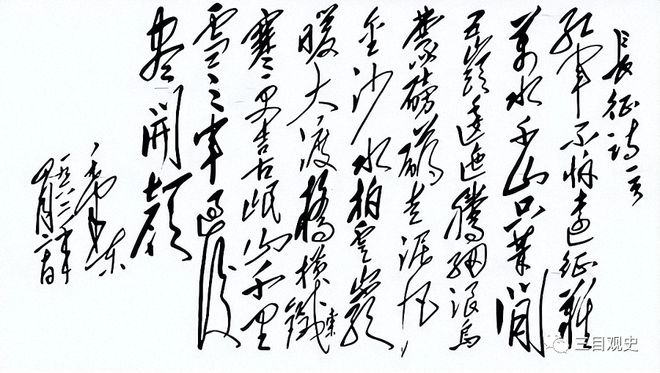 長征詩
紅軍不怕遠征難
萬水千山只等閒
五嶺逶迤騰細浪烏
蒙磅礴走泥丸
金沙水拍雲崖
暖大渡橋橫鐵索
寒更喜岷山千里
雪三軍過後
盡開顏
毛澤東
一九六二年
四月二十日
三目观史